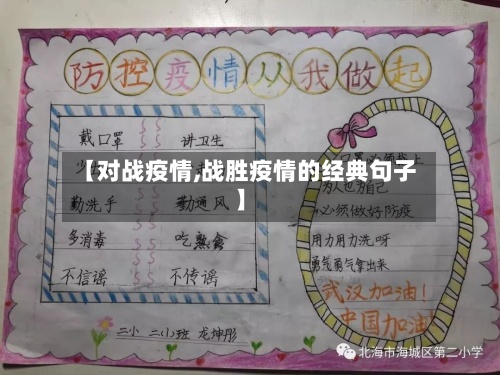 防控疫情从我做起
戴口罩 讲卫生
【对战疫情,战胜疫情的经典句子
】
勤洗手 勤通风
多消毒 吃熟食
不信谣 不传谣
为人也为自己
必须做好防疫
用力用力洗呀
勇气勇气拿出来
武汉加油!
中国加油
二小 二(1)班 龙坤彤
北海市海城区第二小学